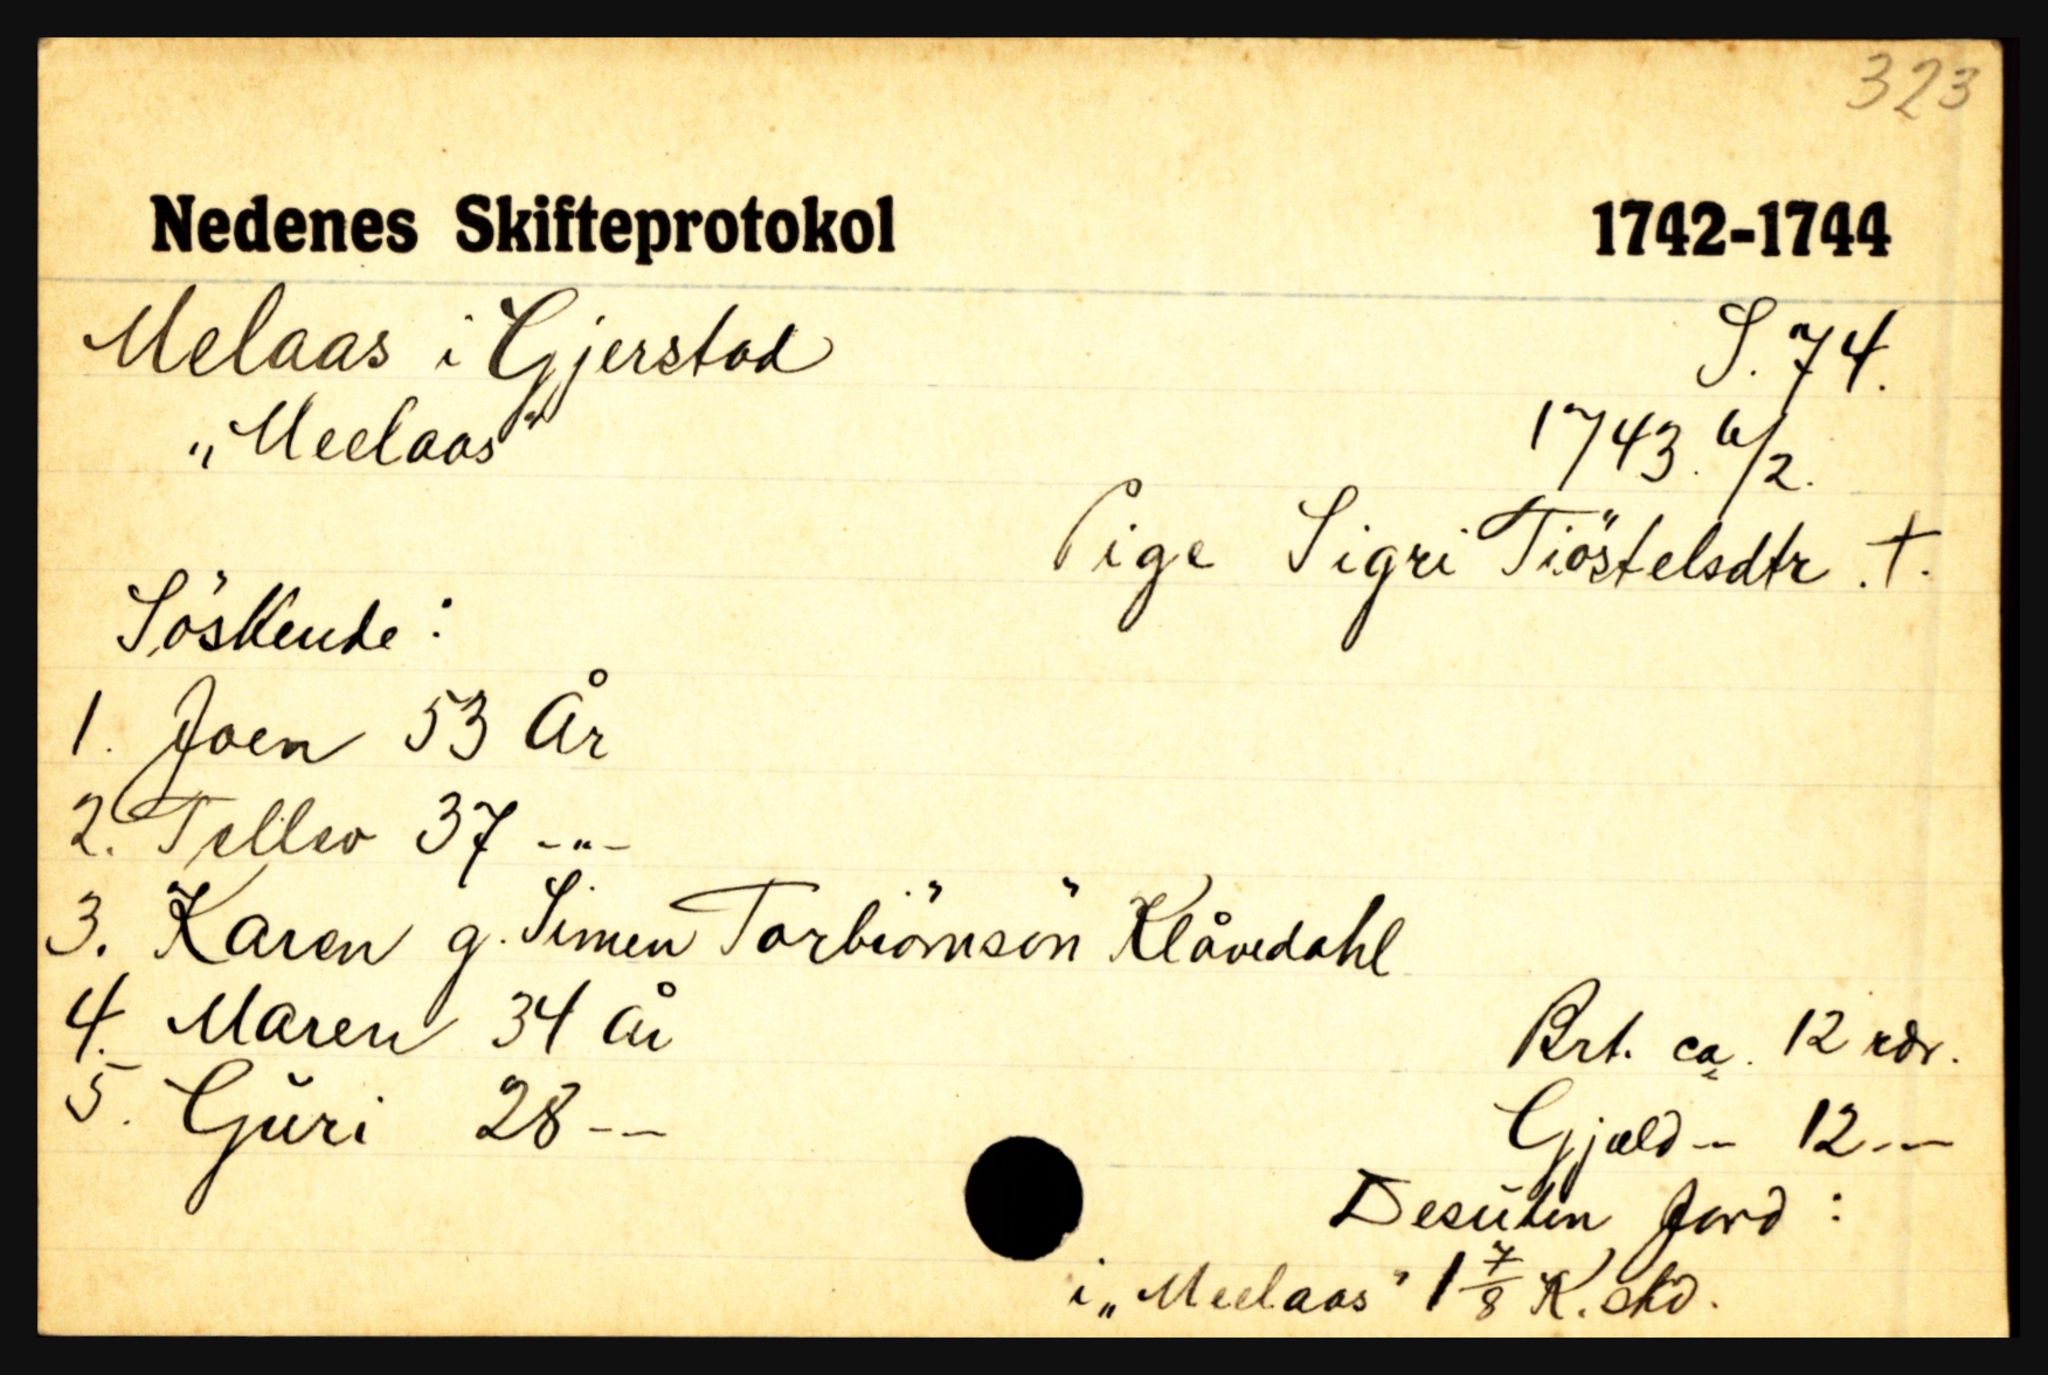 323
Nedenes Skifteprotokol 1742-1744
Melaas i Gjerstad S. 74.
„Meelaas" 1743. 6/2.
Pige Sigri Tiöstelsdtr. †.
Söskende:
1. Joen 53 År
2. Tellev 37 -"-
3. Karen g. Simen Torbiörnsön Klåvedahl
4. Maren 34 år
5. Güri 28 --
Brt. ca. 12 rdr.
Gjæld - 12 --
Desüten Jord:
i „Meelaas" 1 7/8 K. skd.